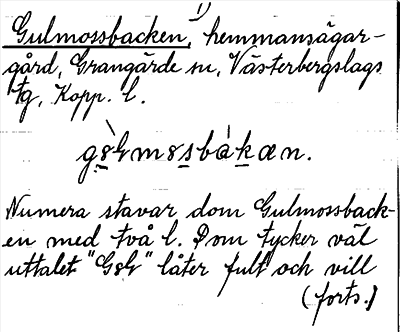 1)
Gulmossbacken, hemmansägar-
gård, Grangärde sn, Västerbergslags
tg, Kopp. l.
g8̀lm8sbàkæn.
Numera stavar dom Gulmossback-
en med två l. Dom tycker väl
uttalet "G8l" låter fult och vill
(forts.)